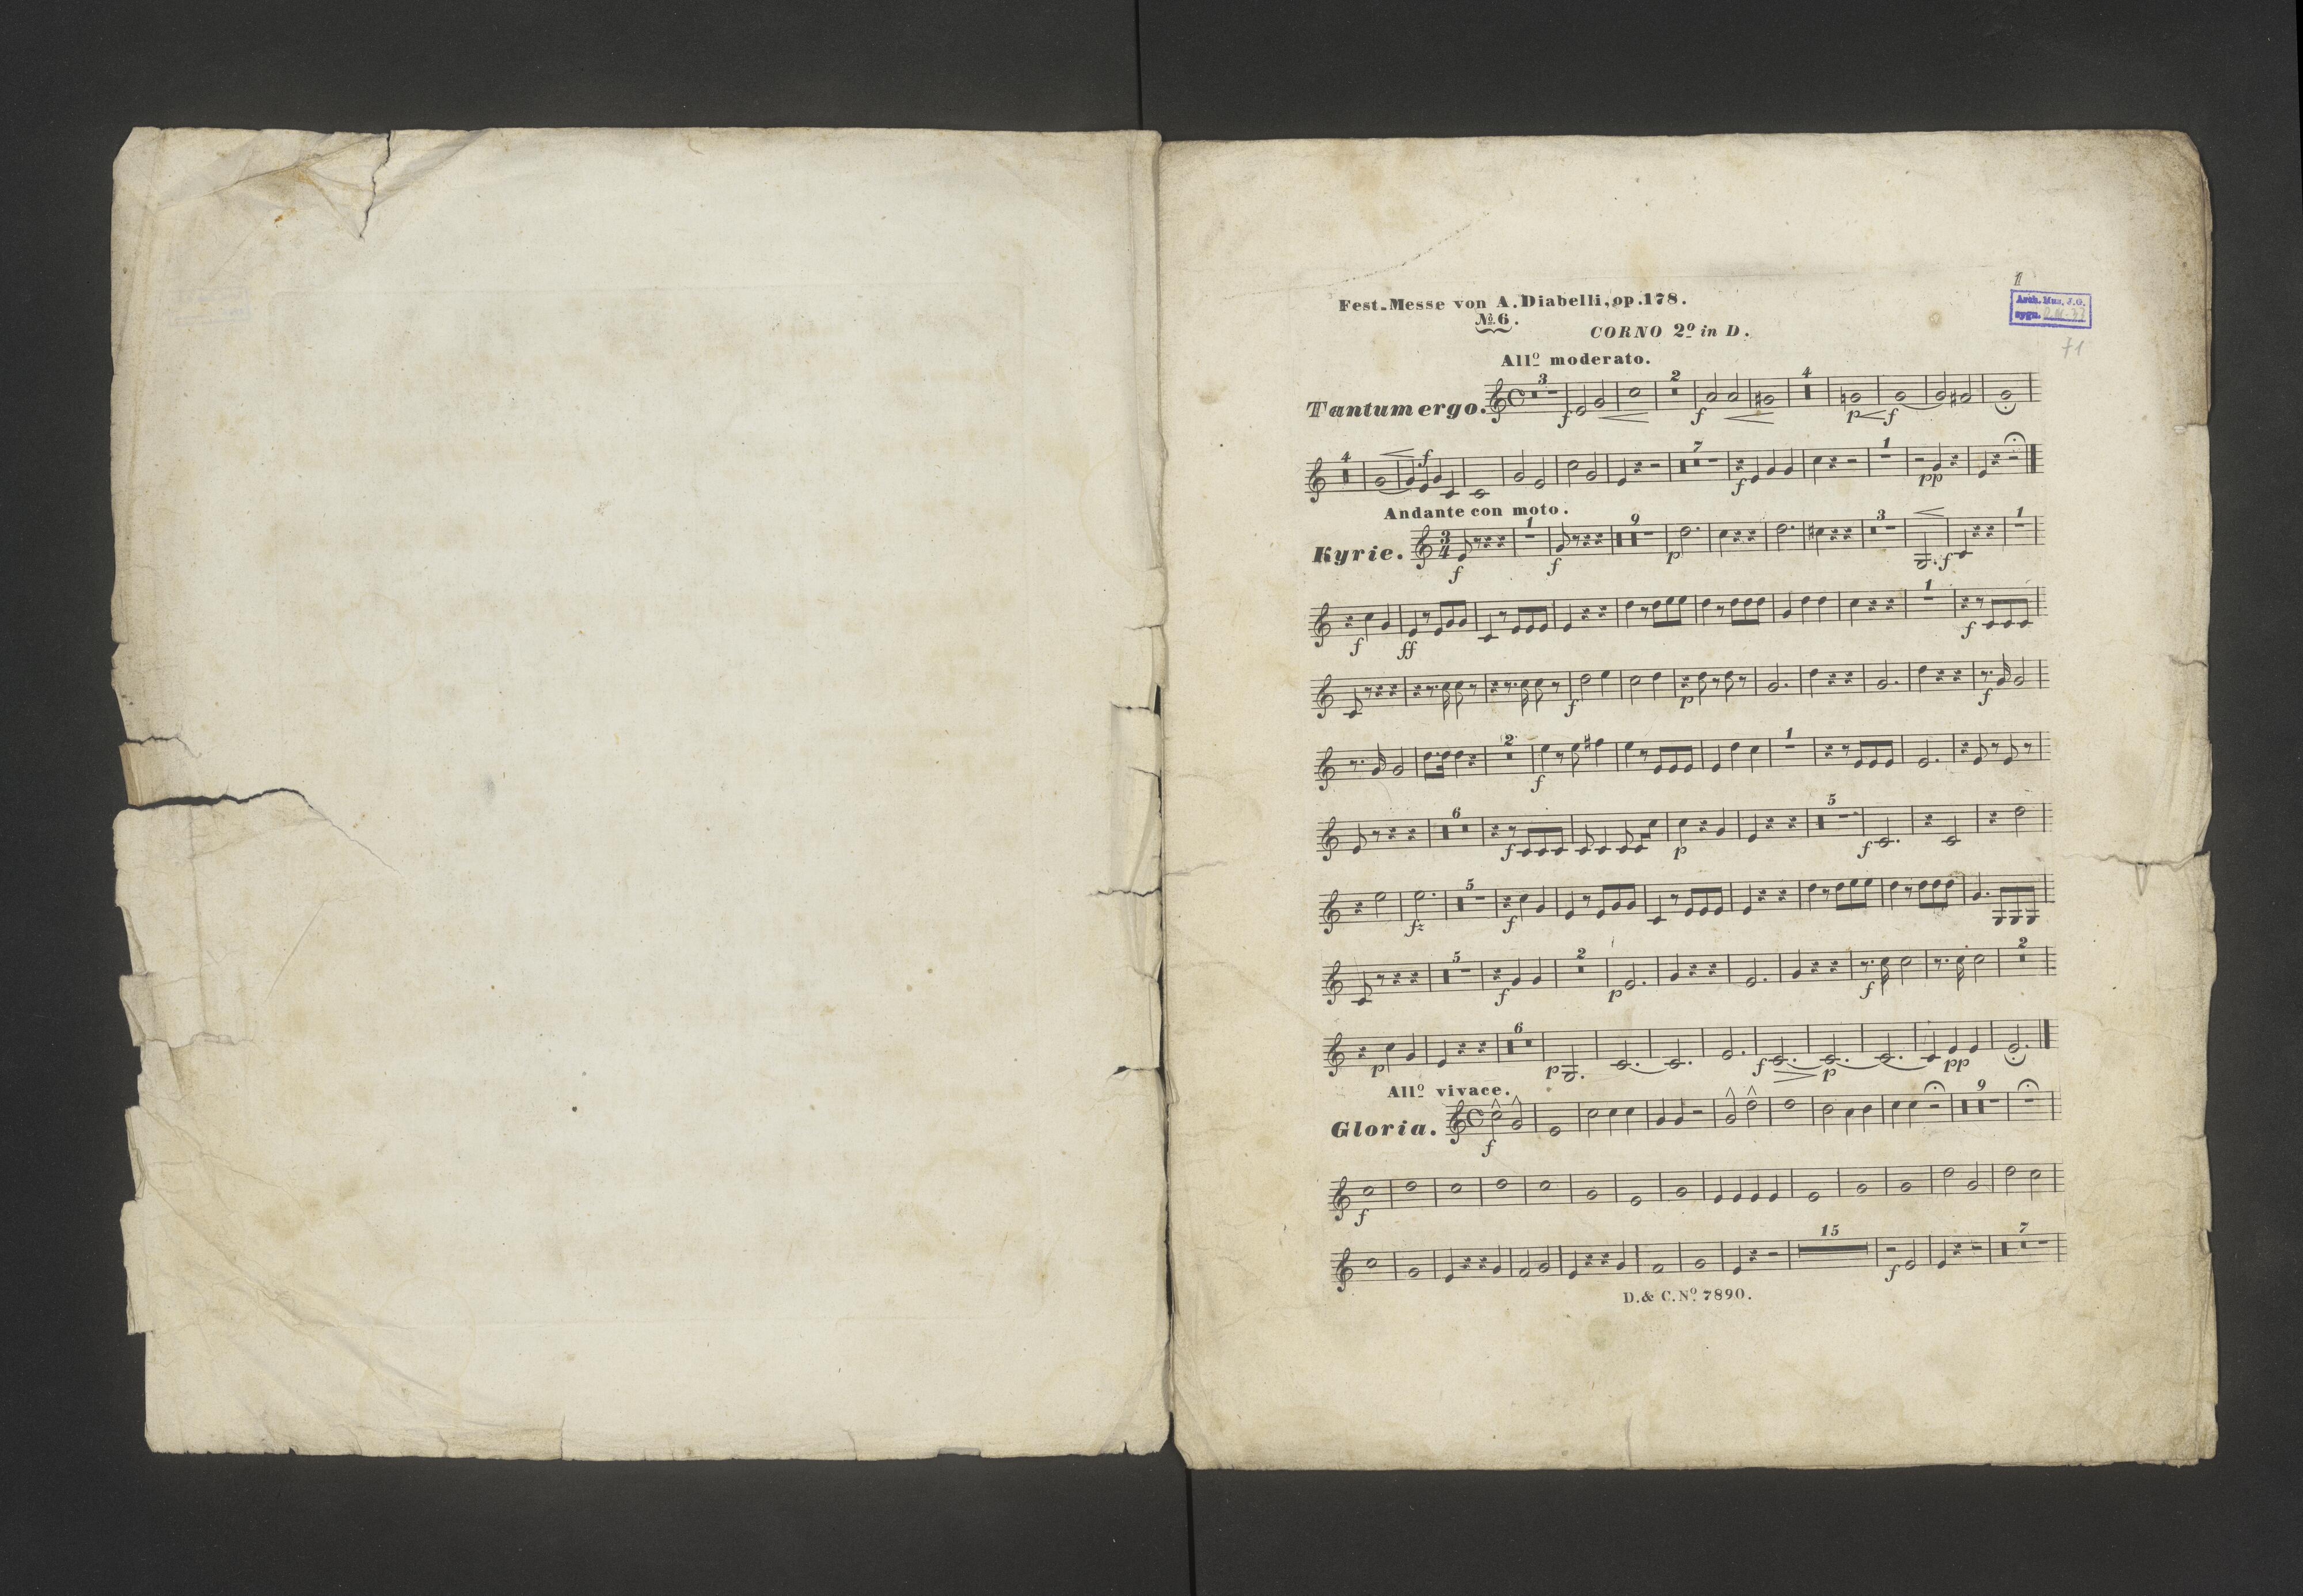 Fest-Messe von A. Diabelli, op. 178.
№ 6.
CORNO 2º in D.
Arch. Muz. J.G.
sygn.
71
Allº moderato.
Tantum ergo.
3 2 4
f f p f
4 7 1
f f pp
Andante con moto.
Kyrie.
3 4 1 9 3 1
f f p f
1
f ff f
f p f
2 1
f
6 5
f p f
5
fz f
5 2 2
f p f
6
p p f p pp
Allº vivace.
Gloria.
9
f
f
15 7
f
D. & C. Nº 7890.